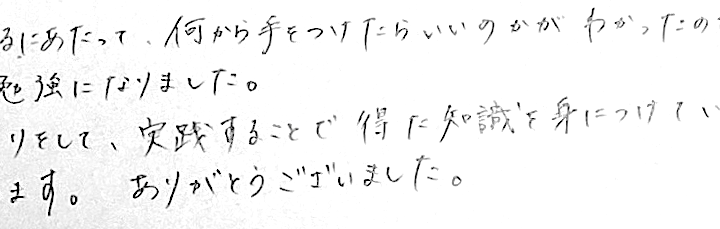 るにあたって、何から手をつけたらいいのかが わかったの
勉強になりました。
りをして、実践することで 得た知識を身につけてい
ます。 ありがとうございました。